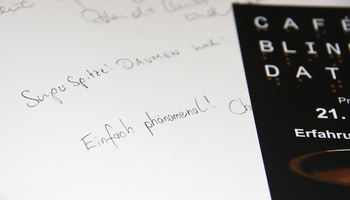 und
Super Spitze! DAUMEN hoch!
Einfach phänomenal!
CAFÉ
BLIN
DAT
Pr
21.
Erfahru